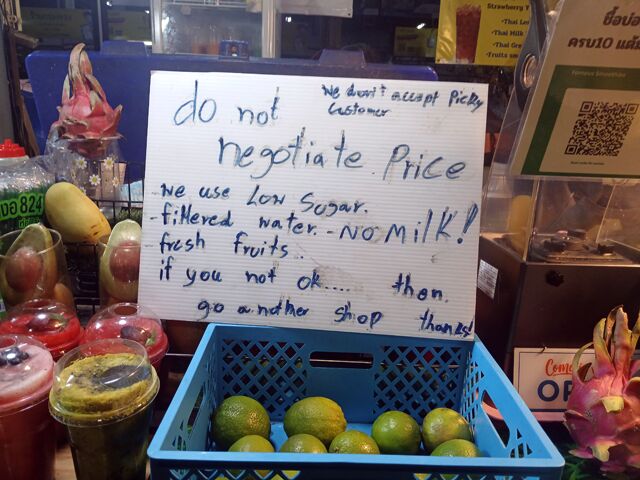 do not
We don't accept Picky
Customer
negotiate Price
-We use Low Sugar.
-filtered water. -NO Milk!
fresh fruits..
if you not ok.... then.
go another shop thanks!
Strawberry Y
•Thai
•Thai Milk
•Thai
Fruits
ครบ10
Famous Smoothies
824
OP